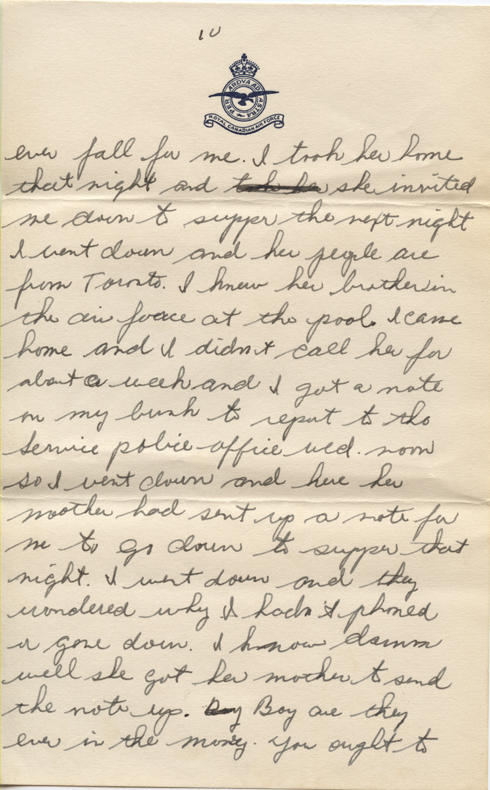 10
PER ARDVA AD ASTRA
ROYAL CANADIAN AIR FORCE
ever fall for me. I took her home
that night and she invited
me down to supper the next night
I went down and her people are
from Toronto. I knew her brothersin
the air foace at the pool. I came
home and I didn't call her for
about a week and I got a note
on my bunk to report to tho
service police office wed. noon
so I went down and here her
mother had sent up a note for
me to go down to supper that
night. I went down and they
wondered why I hadn't phoned
or gone down. I know damm
well she got her mother to send
the note up. Boy are they
ever in the money. you ought to